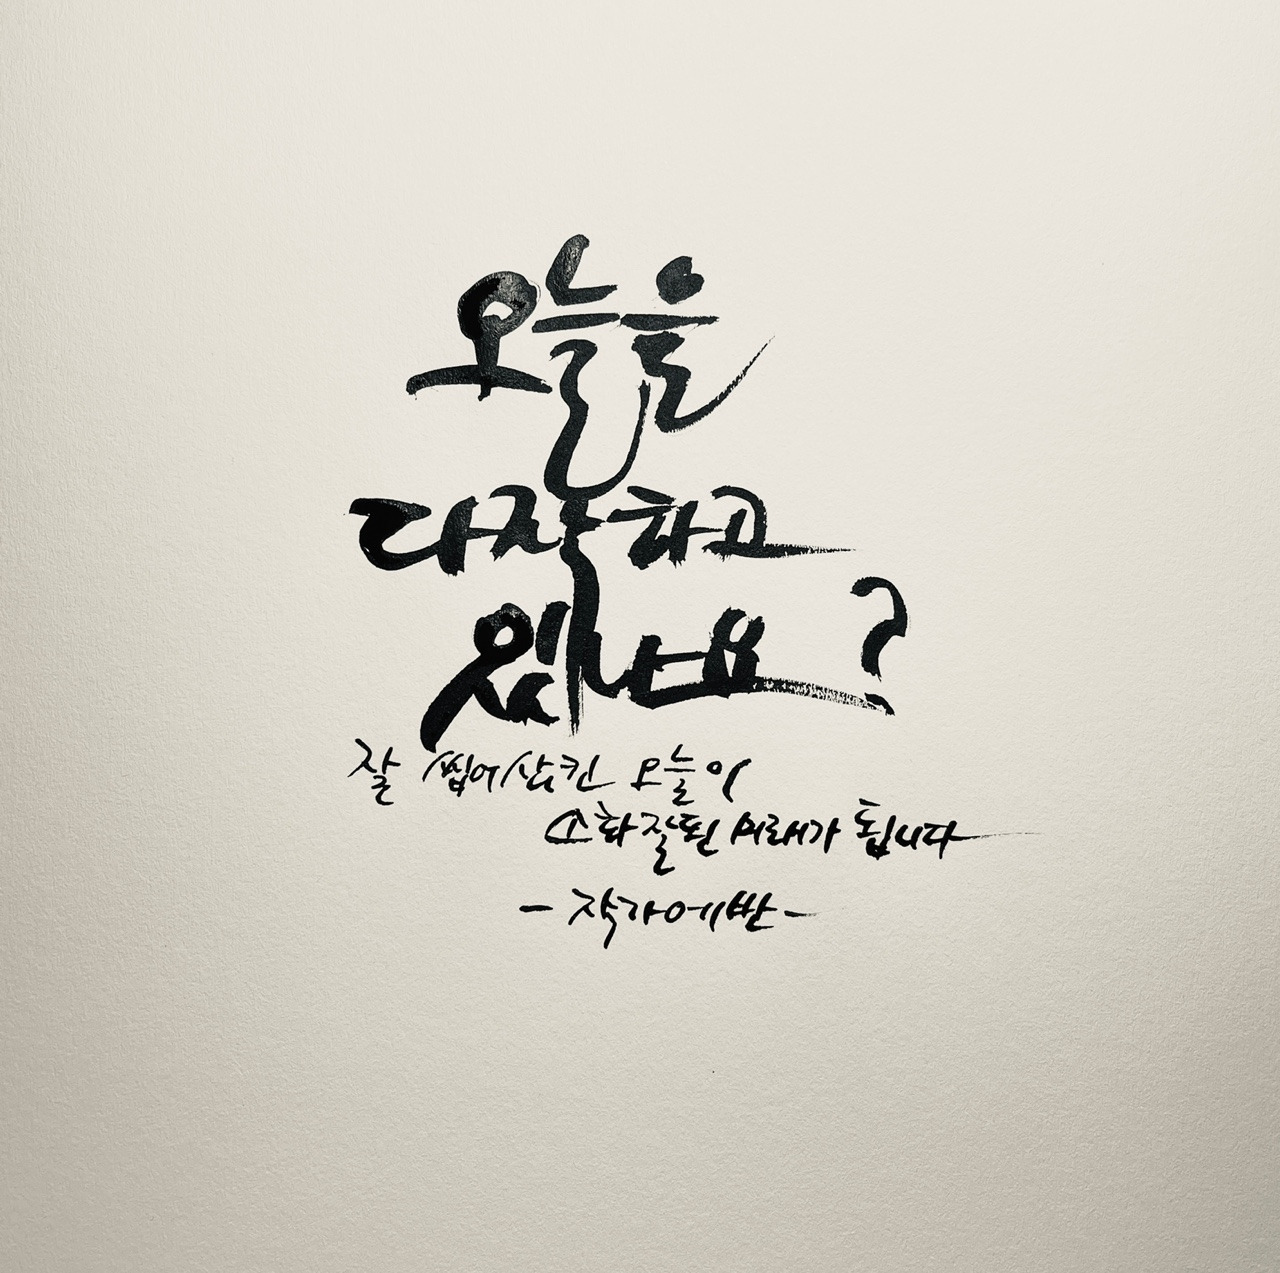 오늘을
다작하고
있나요?
잘 씹어 삼킨 오늘이
소화 잘된 미래가 됩니다
- 작가에반 -